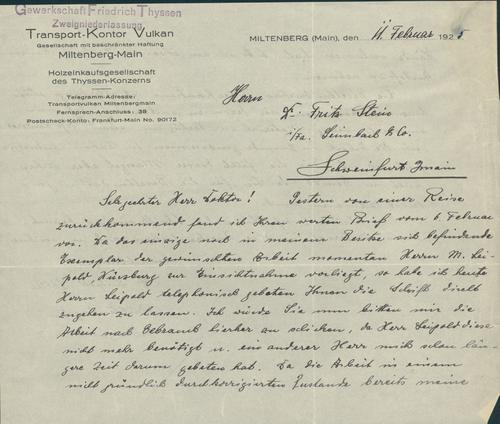 Gewerkschaft Friedrich Thyssen
Zweigniederlassung
Transport-Kontor Vulkan
Gesellschaft mit beschränkter Haftung
Miltenberg-Main
Holzeinkaufsgesellschaft
des Thyssen-Konzerns
Telegramm-Adresse:
Transportvulkan Miltenbergmain
Fernsprech-Anschluss: 38
Postscheck-Konto: Frankfurt-Main No. 90172
MILTENBERG (Main), den 11. Februar 1925
Herrn
Dr. Fritz Stein
i/Fa. & Co.
Schweinfurt /Main
Sehr geehrter Herr Doktor! Gestern von einer Reise
zurückkommend fand ich Ihren werten Brief vom 6. Februar
vor. Da das einzige noch in meinem Besitze sich befindende
Exemplar der gewünschten Arbeit momentan Herrn M. Lei-
pold, Würzburg zur Einsichtnahme vorliegt, so habe ich heute
Herrn Leipold telephonisch gebeten Ihnen die Schrift direkt
zugehen zu lassen. Ich würde Sie nun bitten mir die
Arbeit nach Gebrauch hierher zu schicken, da Herr Leipold diese
nicht mehr benötigt u. ein anderer Herr mich schon län-
gere Zeit darum gebeten hat. Da die Arbeit in einem
nicht gründlich durchkorrigierten Zustande bereits meine